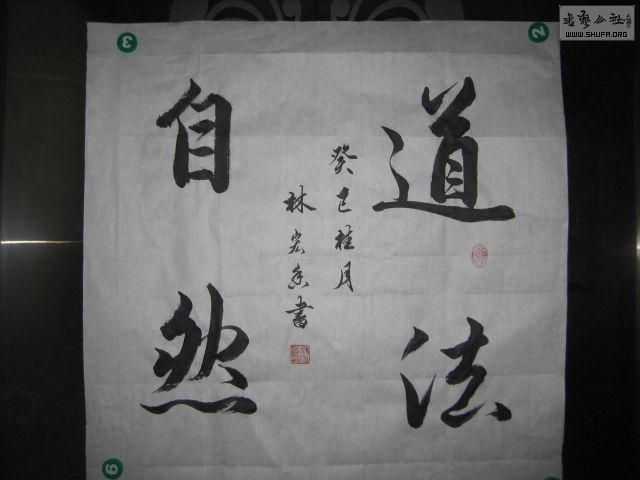 道法
自然
癸巳桂月
林宏奎书
書藝公社
WWW.SHUFA.ORG
3
2
9